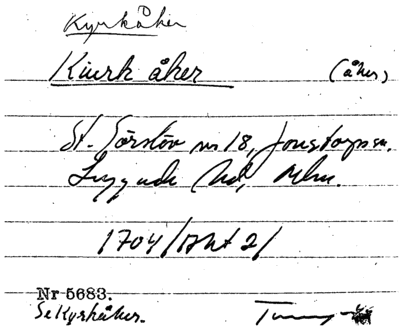 Kyrkåker
Kiurk åker (åker)
St. Görslöv nr 18, Jonstorps sn.
Luggude hd, Mlm.
1704/Akt 2/
Nr 5683.
Se Kyrkåker.